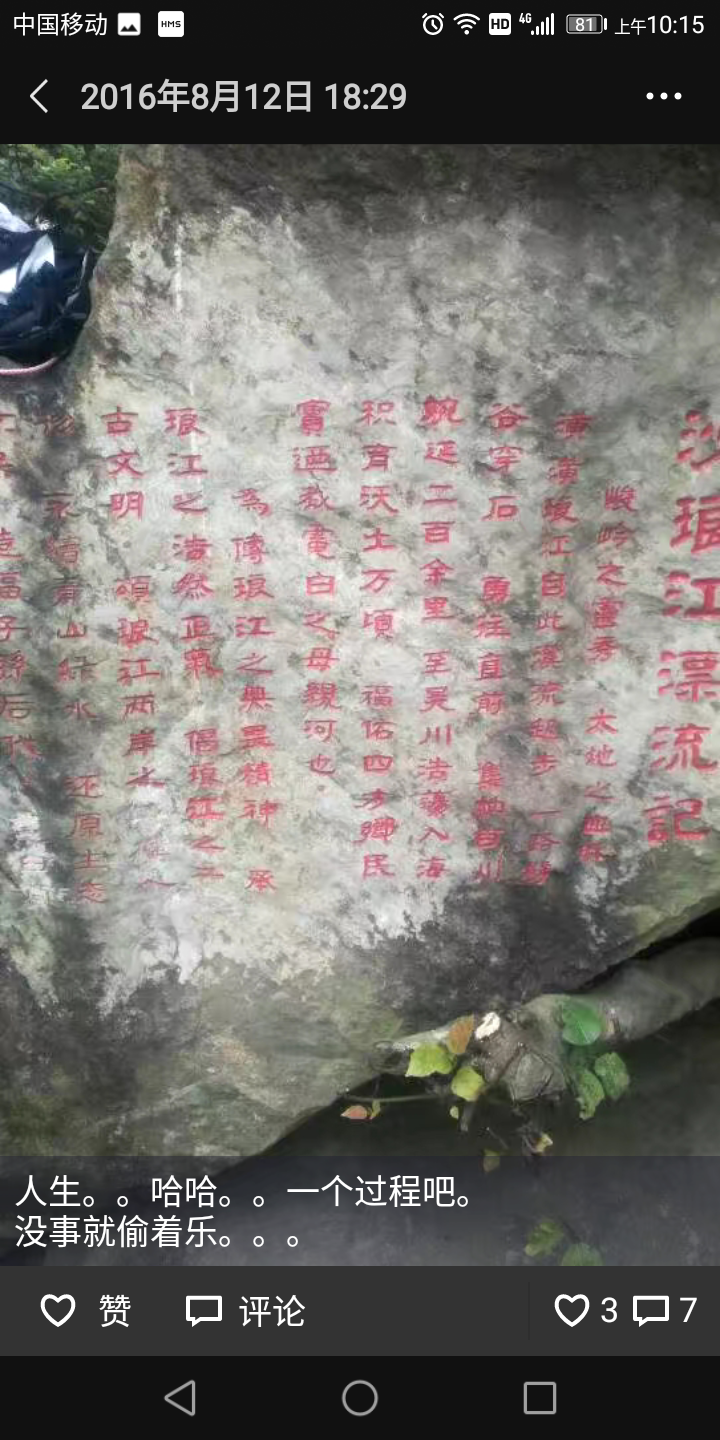 中国移动 HMS HD 4G 81 上午10:15
2016年8月12日 18:29
沙琅江漂流記
峻岭之靈秀 大地之血脈
演漢琅江自此漂流起步
谷穿石 勇往直前 集納百川
蜿延二百余里 至吴川浩蕩入海
积育沃土万頃 福佑四方鄉民
實迺教電白之母親河也
為傳琅江之奥義精神 承
琅江之浩然正氣 倡琅江之
古文明 頌琅江两岸之
青山緑水 还原生态
造福子孫后代
人生。。哈哈。。一个过程吧。
没事就偷着乐。。。
赞 评论 3 7